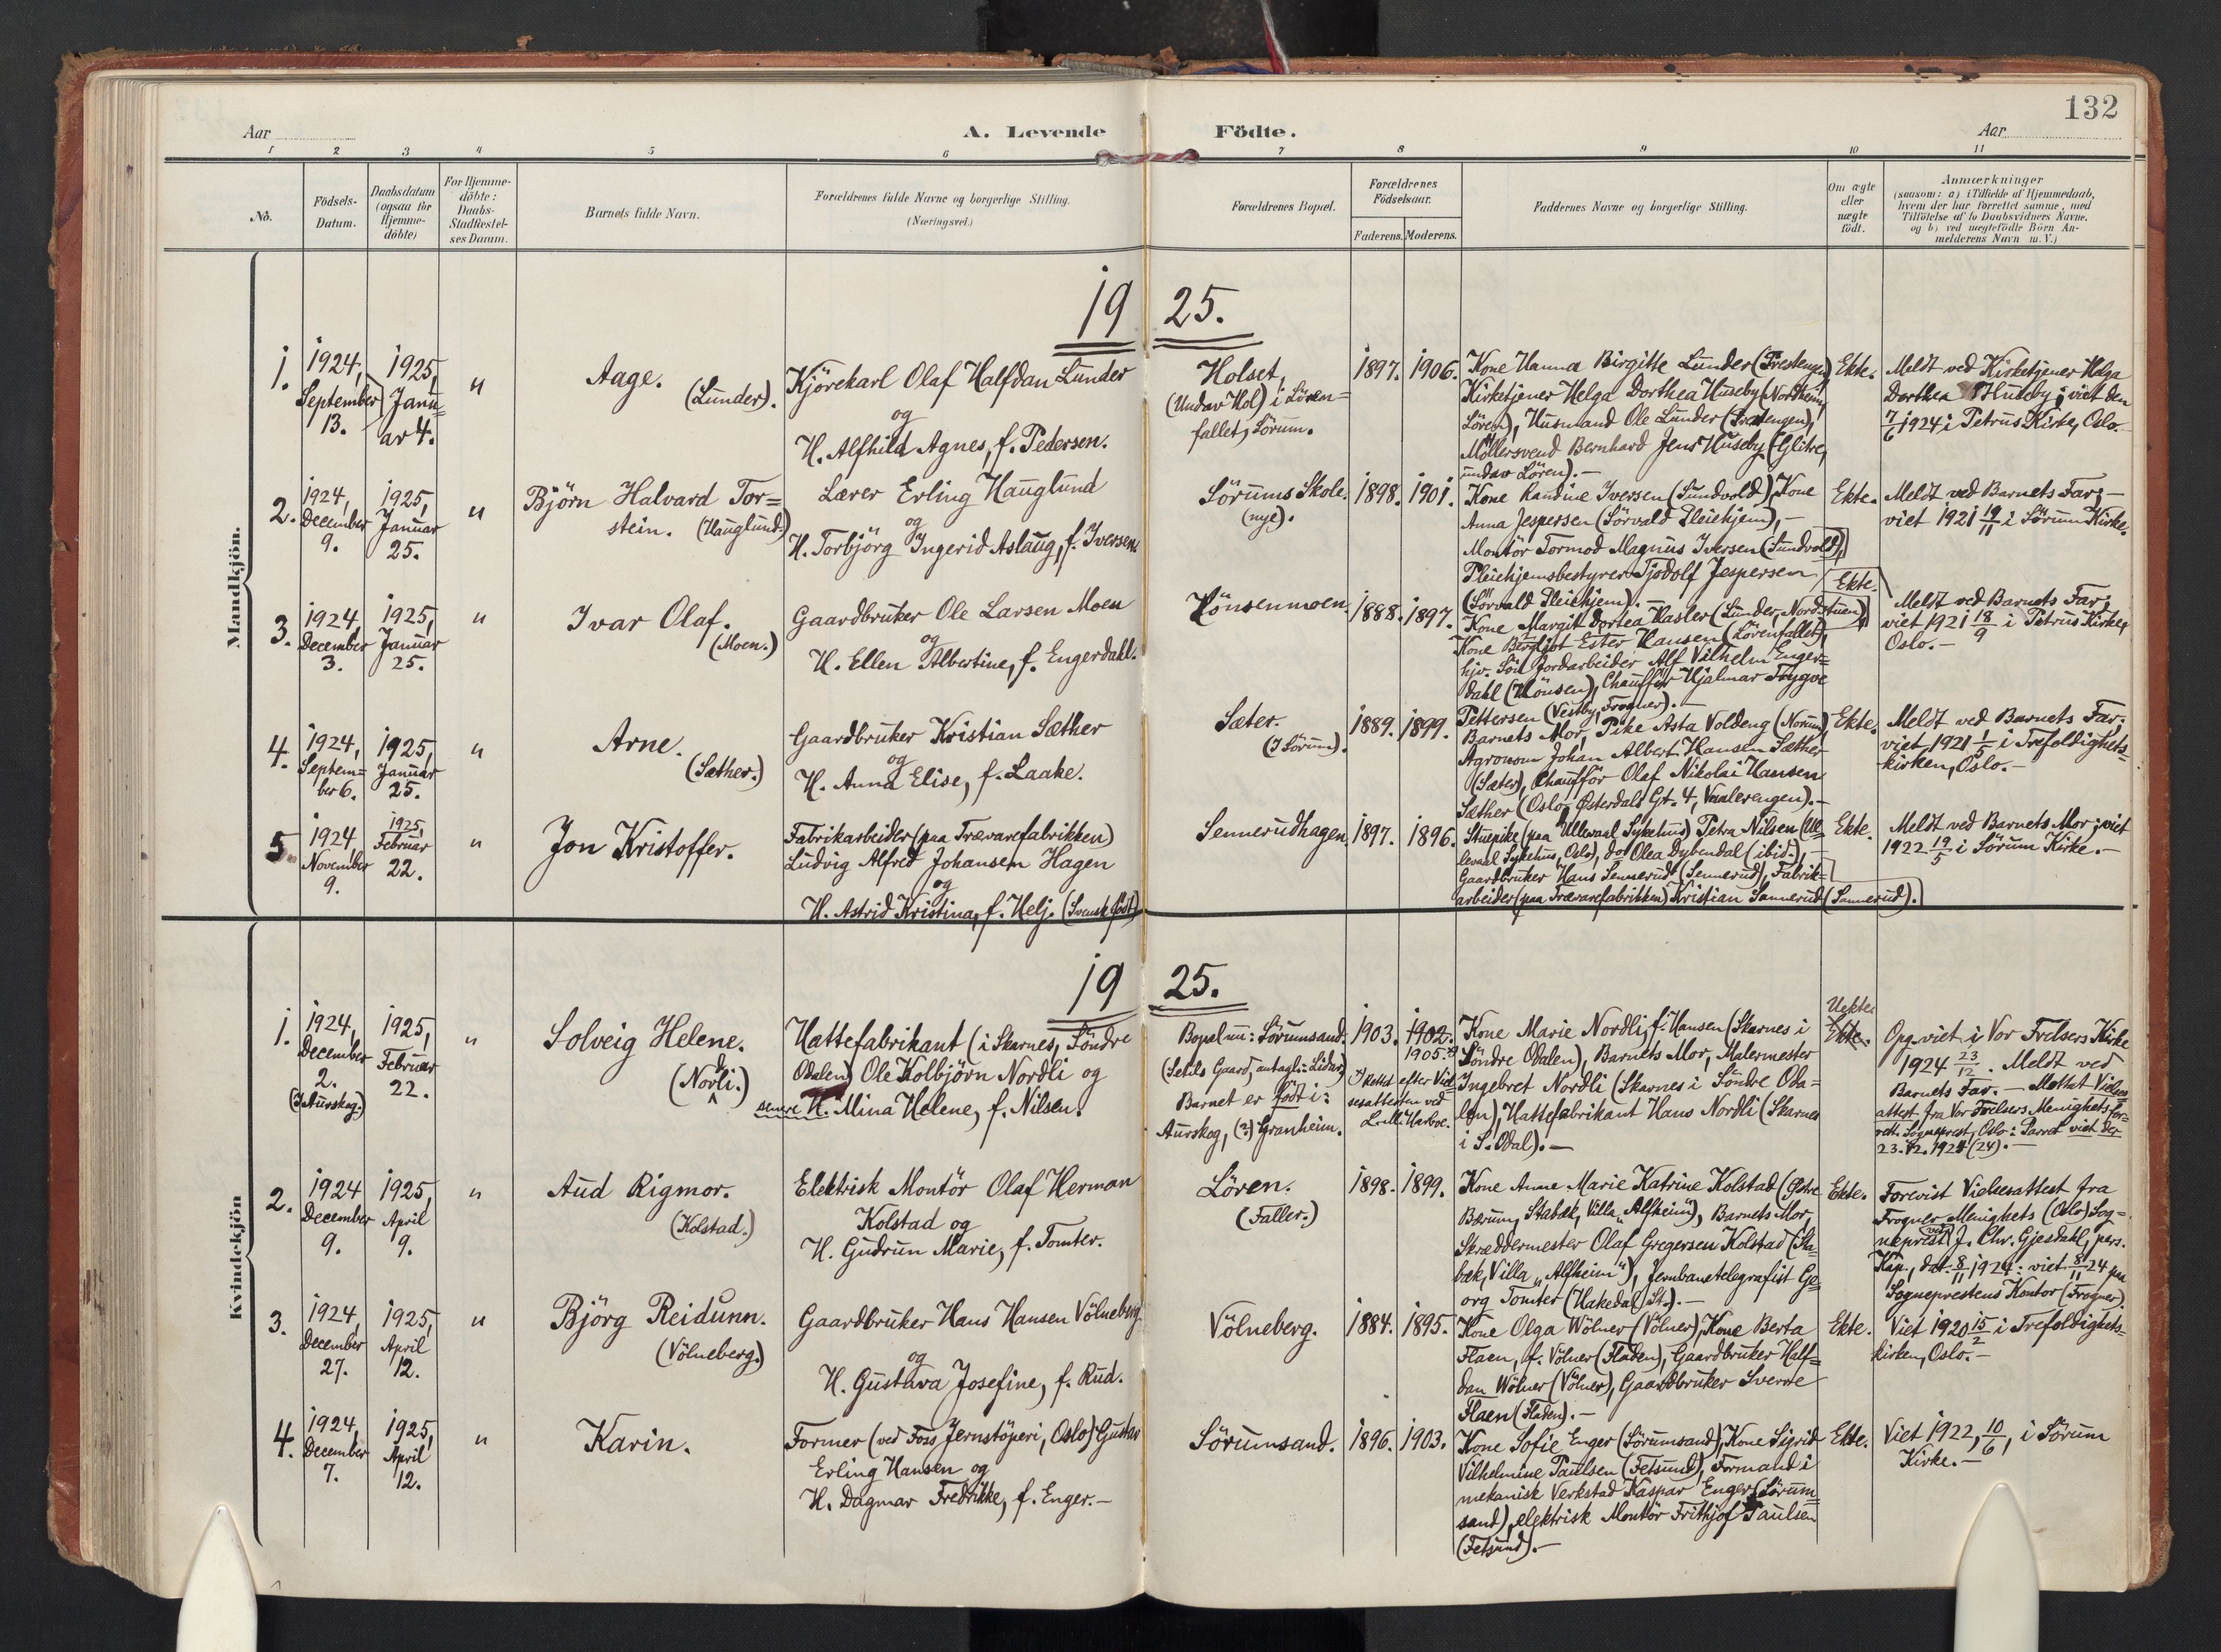 132
Aar
A. Levende Födte.
Aar
1 2 3 4 5 6 7 8 9 10 11
No.
Födsels-
Datum.
Daabsdatum
(ogsaa for
Hjemme-
döbte)
For Hjemme-
döbte:
Daabs-
Stadfæstel-
ses Datum.
Barnets fulde Navn.
Forældrenes fulde Navne og borgerlige Stilling.
(Næringsvei.)
Forældrenes Bopæl.
Forældrenes
Födselsaar.
Faderens. Moderens.
Faddernes Navne og borgerlige Stilling.
Om ægte
eller
uægte
födt.
Anmærkninger
(saasom: a) i Tilfælde af Hjemmedaab,
hvem der har forrettet samme, med
Tilföielse af to Daabsvidners Navne.
og b) ved uægtefödte Börn An-
melderens Navn m. V.)
Mandkjön.
1925.
1.
1924,
September
13.
1925,
Janu=
ar 4.
"
Aage.
(Lunder).
Kjörekarl Olaf Halfdan Lunder
og
H. Alfhild Agnes, f. Pedersen.
Holset,
(Undav Hol) i Lören=
fallet, Sörum.
1897. 1906.
Kone Hanna Birgitte Lunder
Kirketjener Helga Dorthea Huseby (Nordheim,
Lören), Husmand Ole Lunder
Möllersvend Bernhard Jens Huseby (Glitre,
undav Lören).-
Ekte.
Meldt ved Kirketjener Helga
Dorthea Huseby; viet den
7/6 1924 i Petrus Kirke, Oslo.
2.
1924,
December
9.
1925,
Januar
25.
"
Björn Halvard Tor=
stein. (Hauglund.)
Lærer Erling Hauglund
og
H. Torbjörg Ingerid Aslaug, f. Iversen.
Sörums Skole.
(nye).
1898. 1901.
Kone Randine Iversen (Sundvold), Kone
Anna Jespersen (Sörvald Pleiehjem),-
Montör Tormod Magnus Iversen (Sundvold),
Pleiehjemsbestyrer Tjodolf Jespersen
(Sörvald Pleiehjem).-
Ekte.
Meldt ved Barnets Far;-
viet 1921 19/11 i Sörum Kirke.
3.
1924
December
3.
1925,
Januar
25.
"
Ivar Olaf.
(Moen.)
Gaardbruker Ole Larsen Moen
og
H. Ellen Albertine, f. Engerdahl.
Hönsenmoen.
1888. 1897.
Kone Margit Dortea Hasler (Lunder, Nordstuen)
Kone Bergljot Ester Hansen (Lörenfallet),
hjv. Sön Jordarbeider Alf Vilhelm Enger=
dahl (Hönsen), Chaufför Hjalmar Trygve
Pettersen (Vestby, Frogner).-
Ekte.
Meldt ved Barnets Far;
viet 1921 18/9 i Petrus Kirke,
Oslo.-
4.
1924,
Septem=
ber 6.
1925,
Januar
25.
"
Arne.
(Sæther.)
Gaardbruker Kristian Sæther
og
H. Anna Elise, f. Laake.
Sæter.
(I Sörum).
1889. 1899.
Barnets Mor, Pike Asta Voldeng (Norum),
Agronom Johan Albert Hansen Sæther
(Sæter), Chaufför Olaf Nikolai Hansen
Sæther (Oslo, Østerdals Gt. 4, Vaalerengen).-
Ekte.
Meldt ved Barnets Far.
viet 1921 1/5 i Trefoldigheds=
kirken, Oslo.-
5.
1924,
November
9.
1925,
Februar
22.
"
Jon Kristoffer.
Fabrikarbeider (paa Trævarefabrikken)
Ludvig Alfred Johansen Hagen
og
H. Astrid Kristina, f. Helj. (Svensk födt)
Sennerudhagen.
1897. 1896.
Stuepike (paa Ullevaal Sykehus) Petra Nilsen (Ul=
levaal Sykehus, Oslo), do Olea Dybendal (ibid.),-
Gaardbruker Hans Sennerud (Sennerud), Fabrik=
arbeider (paa Trævarefabrikken) Kristian Sannerud (Sannerud).
Ekte.
Meldt ved Barnets Mor; viet
1922 19/5 i Sörum Kirke.-
Kvindekjön
1925.
1.
1924,
December
2.
(I Aurskog.)
1925,
Februar
22.
"
Solveig Helene.
(Nordli.)
Hattefabrikant (i Skarnes, Söndre
Odalen) Ole Kolbjörn Nordli og
senere H. Mina Helene, f. Nilsen.
Bopæl nu: Sörumsand.
Barnet er födt i:
Aurskog, (?) Granheim.
1903. 1902.
1905.
rettet efter Viel=
sesattesten ved
Harboe.
Kone Marie Nordli, f. Hansen (Skarnes i
Söndre Odalen), Barnets Mor, Malermester
Ingebret Nordli (Skarnes i Söndre Oda=
len), Hattefabrikant Hans Nordli (Skarnes
i S. Odal).-
Uekte
Ekte.
Opg. viet i Vor Frelsers Kirke
1924 23/12. Meldt ved
Barnets Far.- Mottat Vielses
attest fra Vor Frelsers Menighets for=
rett. Sogneprest, Oslo: Parret viet der
23.12.1924 (24).-
2.
1924
December
9.
1925,
April
9.
"
Aud Rigmor.
(Kolstad.)
Elektrisk Montör Olaf Herman
Kolstad og
H. Gudrun Marie, f. Tomter.
Lören.
(Faller.)
1898. 1899.
Kone Anne Marie Katrine Kolstad (Østre
Bærum, Stabæk, Villa „Alfheim"), Barnets Mor,
Skræddermester Olaf Gregersen Kolstad (Sta=
bæk, Villa „Alfheim"), Jernbanetelegrafist Ge=
org Tomter (Hakedal St.).-
Ekte.
Forevist Vielsesattest fra
Frogner Menighets (Oslo) Sog=
neprest ved J. Chr. Gjesdahl, pers.
Kap., dat. 8/11 1924: viet 8/11 24 paa
Sogneprestens Kontor (Frogner).
3.
1924,
December
27.
1925,
April
12.
"
Björg Reidunn.
(Völneberg.)
Gaardbruker Hans Hansen Völneberg
og
H. Gustava Josefine, f. Rud.
Völneberg.
1884. 1895.
Kone Olga Wölner (Völner), Kone Berta
Flaen, f. Völner (Fladen), Gaardbruker Half=
dan Wölner (Völner), Gaardbruker Sverre
Flaen (Fladen).-
Ekte.
Viet 1920 15/2 i Trefoldigheds=
kirken, Oslo.-
4.
1924,
December
7.
1925,
April
12.
"
Karin.
Former (ved Foss Jernstöperi, Oslo) Gustav
Erling Hansen og
H. Dagmar Fredrikke, f. Enger.-
Sörumsand.
1896. 1903.
Kone Sofie Enger (Sörumsand), Kone Sigrid
Vilhelmine Paulsen (Fetsund), Formand i
mekanisk Verkstad Kaspar Enger (Sörum=
sand), elektrisk Montör Frithjof Paulsen
(Fetsund).-
Ekte.
Viet 1922, 10/6, i Sörum
Kirke.-